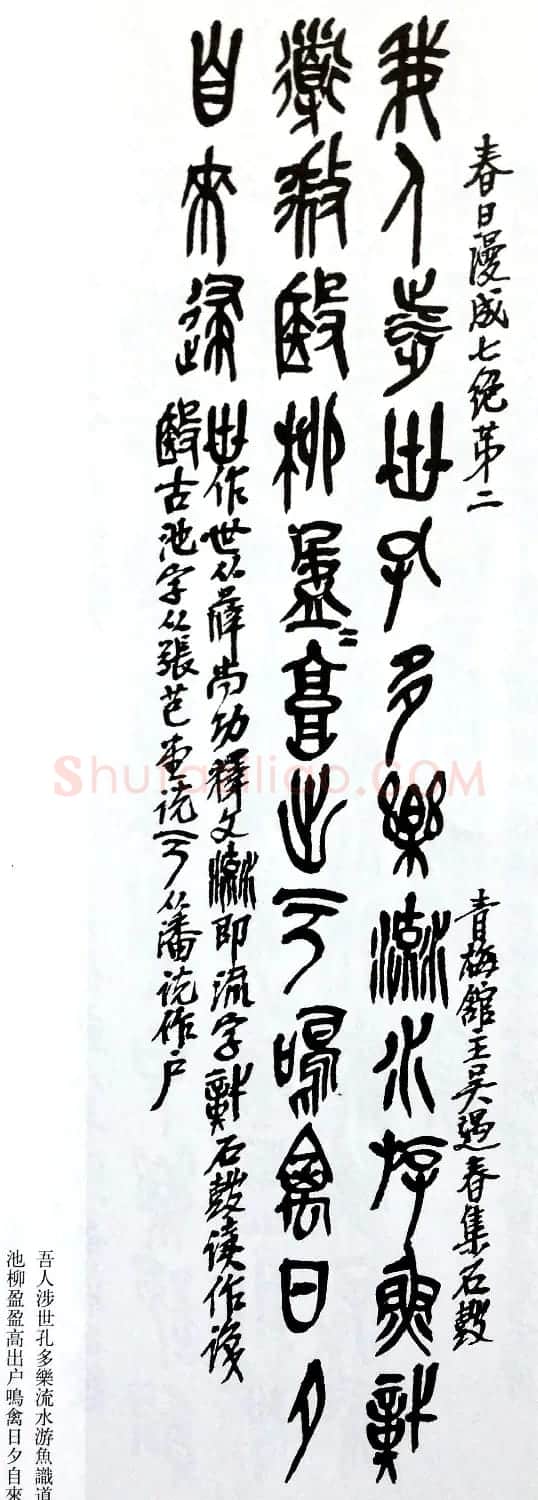 春日漫成七絕苐二
青梅館主吳遇春集石鼓
我人涉世孔多樂流水游魚識
道池柳盈=高出户鳴禽日夕
自來歸
世作世从薛尚功釋文流即流字識石鼓读作
殹古池字从張芑堂说丂从潘说作户
吾人涉世孔多樂流水游魚識道
池柳盈盈高出户鳴禽日夕自來
Shufaziliao.COM